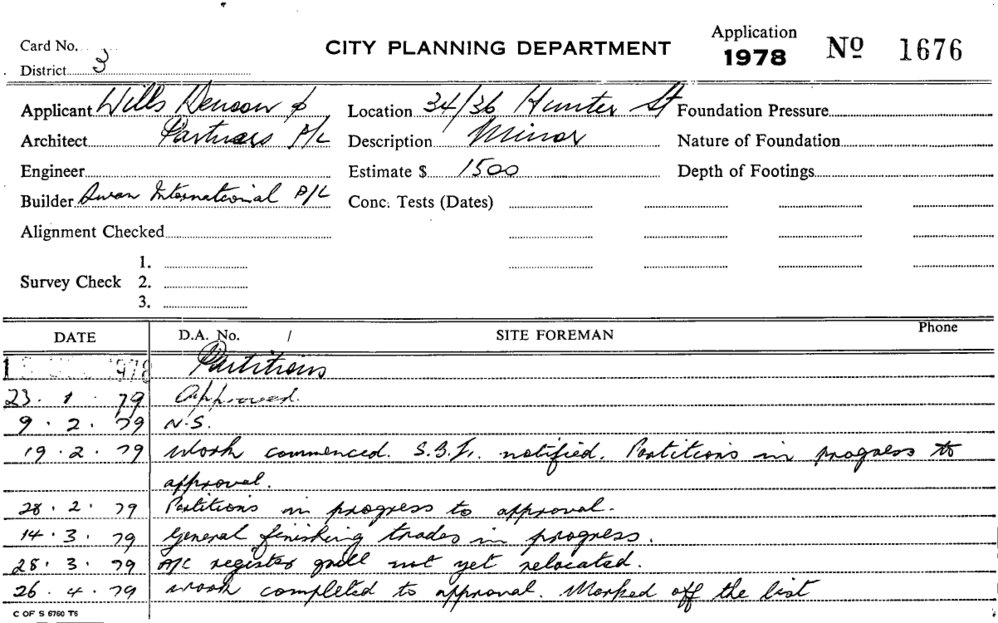 Card No.
District 3
CITY PLANNING DEPARTMENT
Application
1978 No 1676
Applicant Wills Denoon &
Architect Partners P/L
Engineer
Builder Swan International P/L
Location 34/36 Hunter St
Description Minor
Estimate $ 1500
Conc. Tests (Dates)
Foundation Pressure
Nature of Foundation
Depth of Footings
Alignment Checked
Survey Check
1.
2.
3.
DATE D.A. No. / SITE FOREMAN Phone
1 1978 Partitions
23.1.79 Approved.
9.2.79 N.S.
19.2.79 Work commenced. notified. Partitions in progress to
approval.
28.2.79 Partitions in progress to approval.
14.3.79 General finishing trades in progress.
28.3.79 A/C register grill not yet relocated.
26.4.79 Work completed to approval. Marked off the list
C OF S 6760 TS